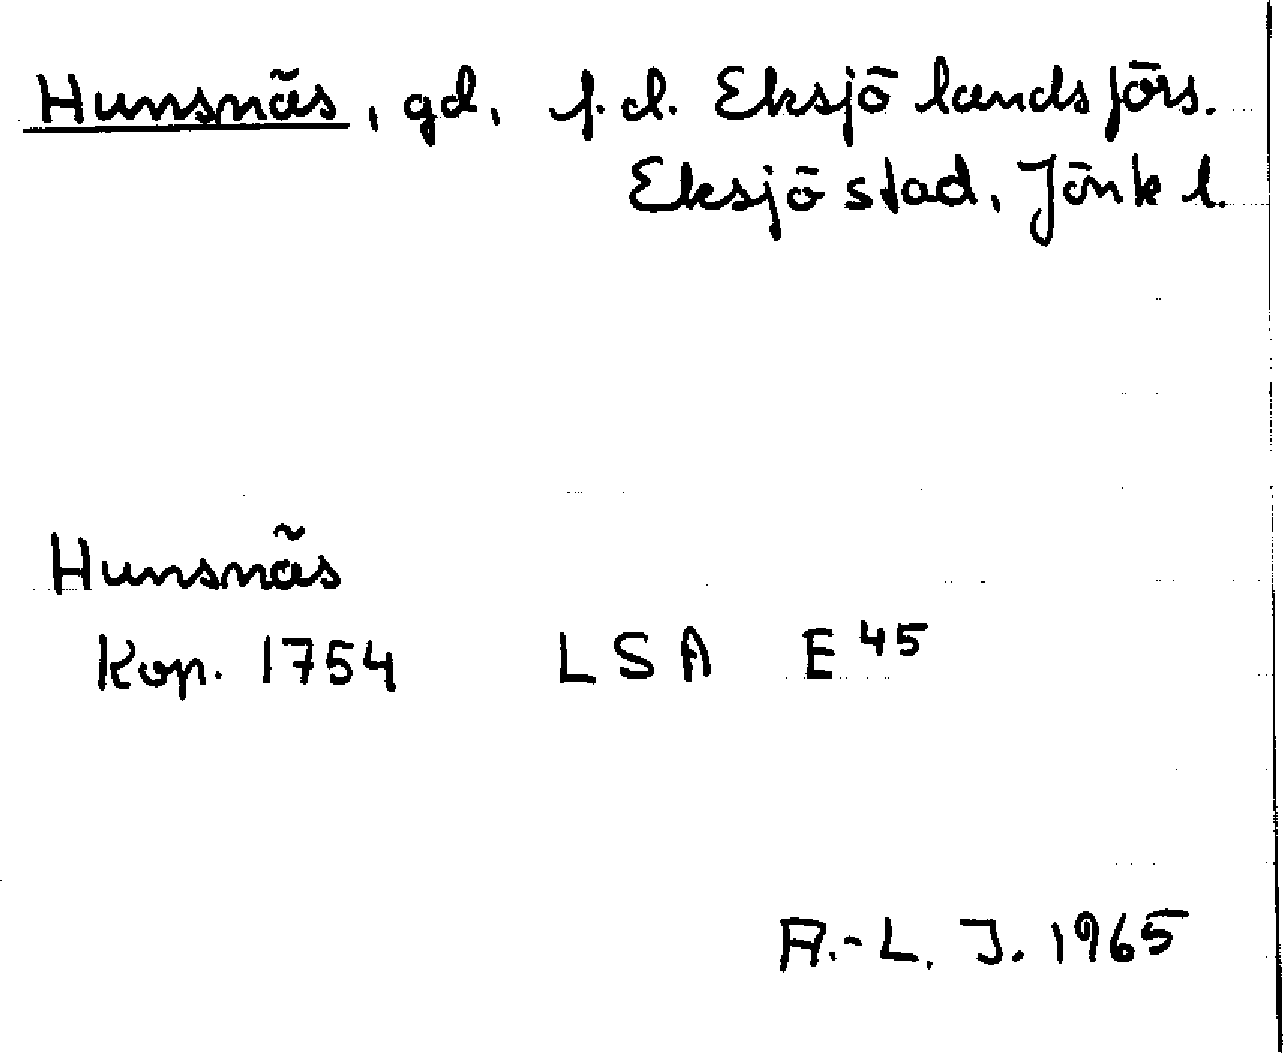 Hunsnäs, gd, f.d. Eksjö landsförs.
Eksjö stad, Jönk l.
Hunsnäs
Kop. 1754 LSA E 45
A.-L. J. 1965